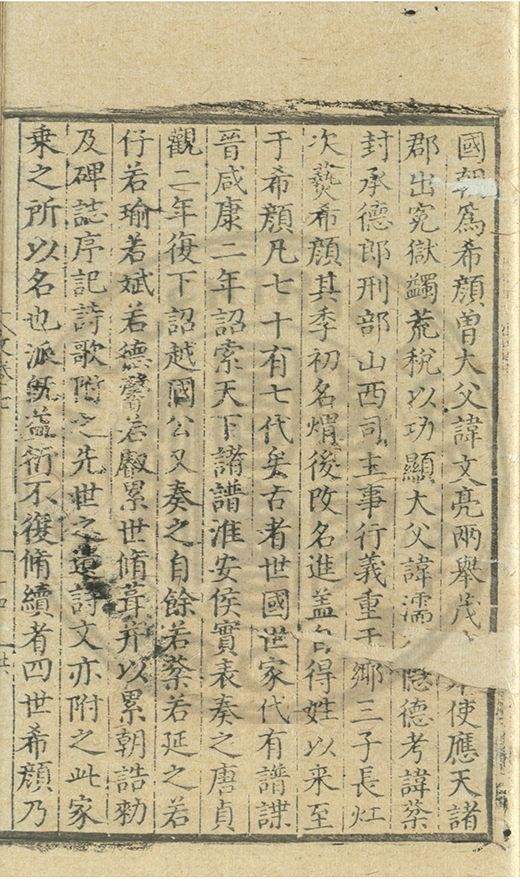 國朝為希顔曽大父諱文亮兩舉茂使應天諸
郡出寃獄蠲荒稅以功顯大父諱濡隱德考諱棨
封承德郎刑部山西司主事行義重于郷三子長灴
次爇希顔其季初名焨後改名進盖自得姓以来至
于希顔凡七十有七代矣古者世國世家代有譜諜
晉咸康二年詔索天下諸譜淮安侯實表奏之唐貞
觀二年復下詔越國公又奏之自餘若蔡若延之若
仔若瑜若斌若德馨若叡累世脩葺并以累朝誥勑
及碑誌序記詩歌附之先世之遺詩文亦附之此家
乗之所以名也派既益衍不復脩續者四世希顔乃